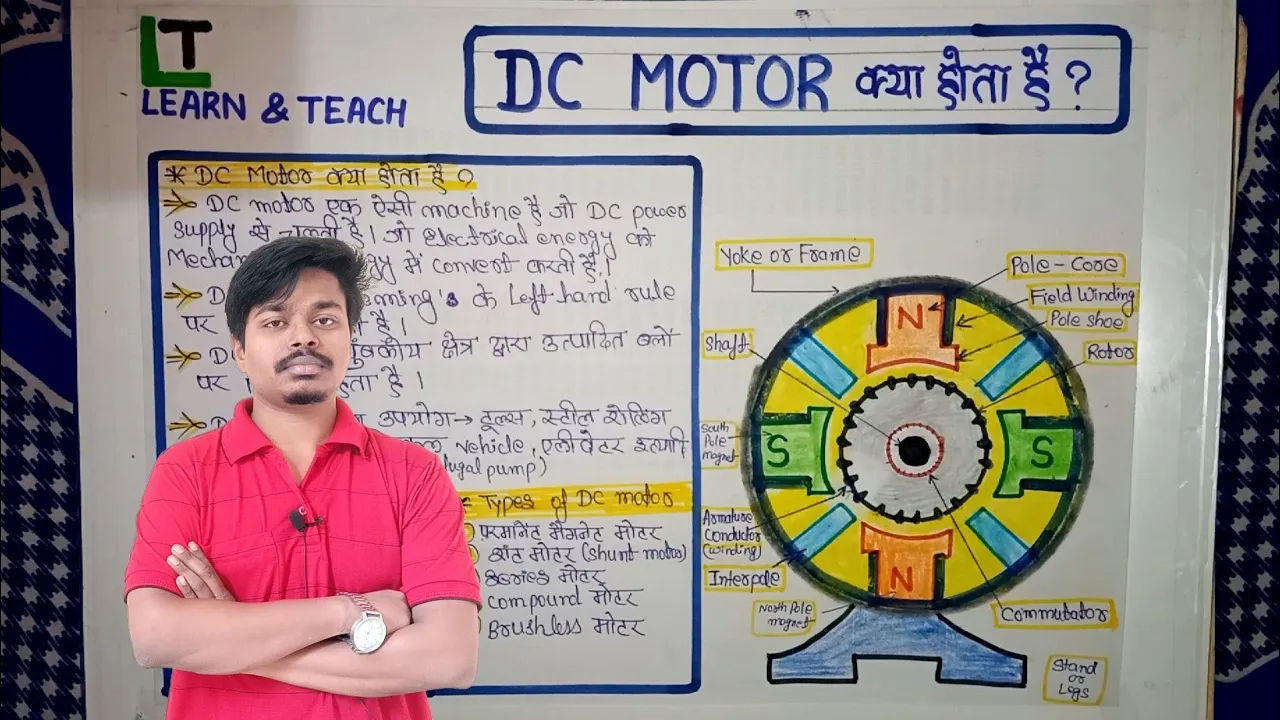 LT
LEARN & TEACH
DC MOTOR क्या होता है ?
* DC Motor क्या होता है ?
→ DC motor एक ऐसी machine है जो DC power
supply से चलती है। जो electrical energy को
में convert करती है।
के Left hand rule
पर है।
क्षेत्र द्वारा उत्पादित बलों
पर है।
उपयोग→ टूल्स, स्टील रोलिंग
vehicle, एलीवेटर इत्यादि
pump)
Types of DC motor
परमानेंट मैगनेट मोटर
शंट मोटर (shunt motor)
Series मोटर
Compound मोटर
Brushless मोटर
Yoke or Frame
Pole-Core
Field Winding
Pole shoe
Shaft
Rotor
N
South
Pole
magnet
S
S
Armature
Conductor
(winding)
Interpole
N
North Pole
magnet
Commutator
Stand
or
Legs